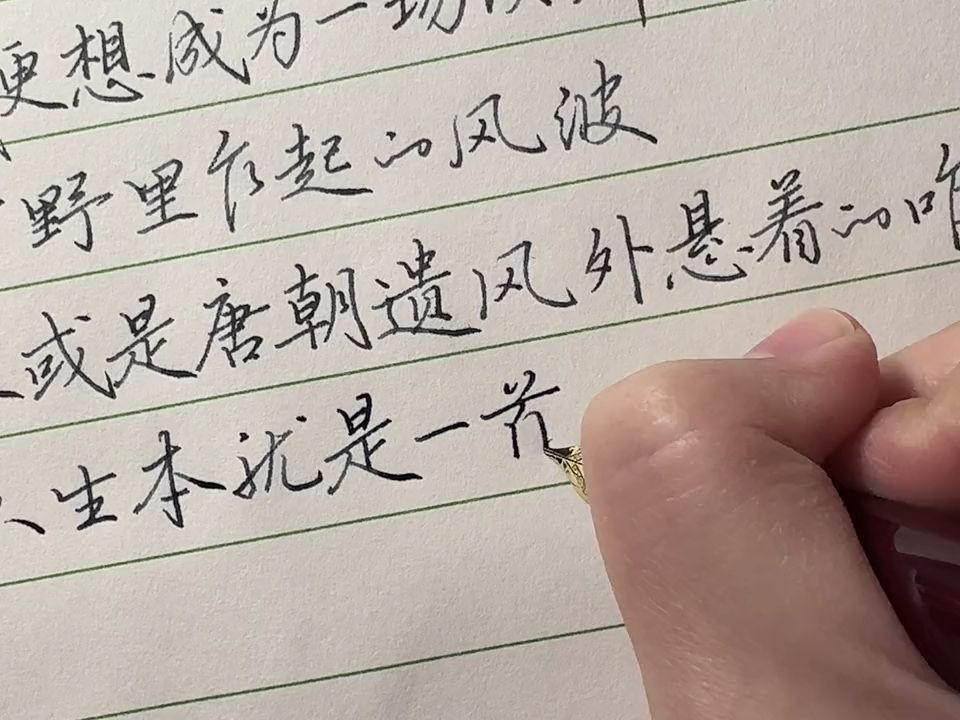 更想成为一场
野里乍起的风波
或是唐朝遗风外悬着的
生本就是一首